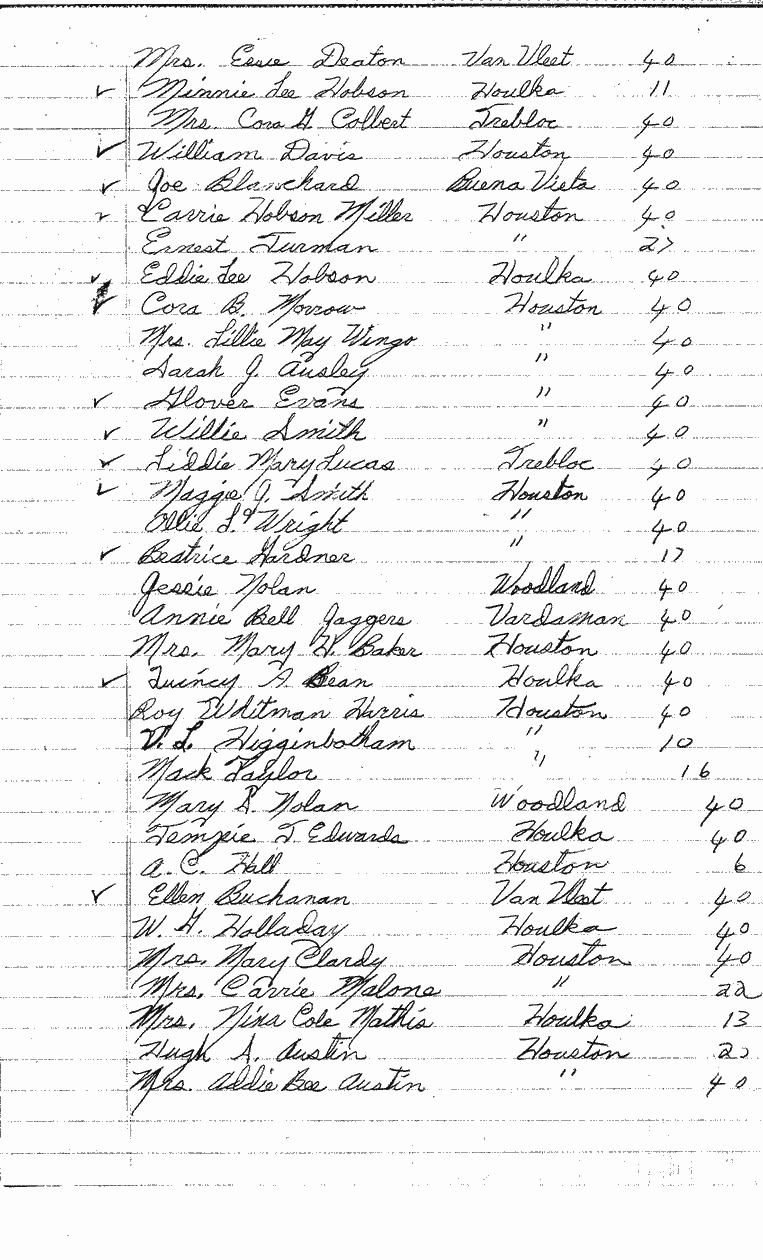 Mrs. Essie Deaton Van Vleet 40
✓ Minnie Lee Hobson Houlka 11
Mrs. Cora G Colbert Trebloc 40
✓ William Davis Houston 40
✓ Joe Blanchard Buena Vista 40
✓ Carrie Hobson Miller Houston 40
Ernest Turman " 27
✓ Eddie Lee Hobson Houlka 40
✓ Cora B. Morrow Houston 40
Mrs. Lillie May Wingo " 40
Sarah J. Ausley " 40
✓ Glover Evans " 40
✓ Willie Smith " 40
✓ Liddie Mary Lucas Trebloc 40
✓ Maggie J. Smith Houston 40
Ollie L. Wright " 40
✓ Beatrice Gardner " 17
Jessie Nolan Woodland 40
Annie Bell Jaggers Vardaman 40
Mrs. Mary W. Baker Houston 40
✓ Quincy A Bean Houlka 40
Roy Whitman Harris Houston 40
V. L. Higginbotham " 10
Mack Taylor " 16
Mary Nolan Woodland 40
Tempie T Edwards Houlka 40
A. C. Hall Houston 6
✓ Ellen Buchanan Van Vleet 40
W. G. Holladay Houlka 40
Mrs. Mary Clardy Houston 40
Mrs. Carrie Malone " 22
Mrs. Nina Cole Mathis Houlka 13
Hugh A. Austin Houston
Mrs. Addie Bee Austin " 40